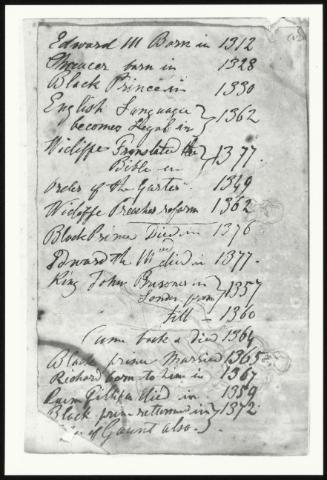 Edward III Born in 1312
Chaucer born in 1328
Black Prince in 1330
English Language
becomes Legal in } 1362
Wicliffe Translated the
Bible in } 1377.
Order of the Garter 1349
Wicloffe Preaches reform 1362
Black Prince Died in 1376
Edward the III died in 1377.
King John Prisoner in
London from } 1357
till = 1360
Came back & died 1364
Black prince Married 1365
Richard born to him in 1367
Died in 1359
Black prince returned in } 1372
of Gaunt also.